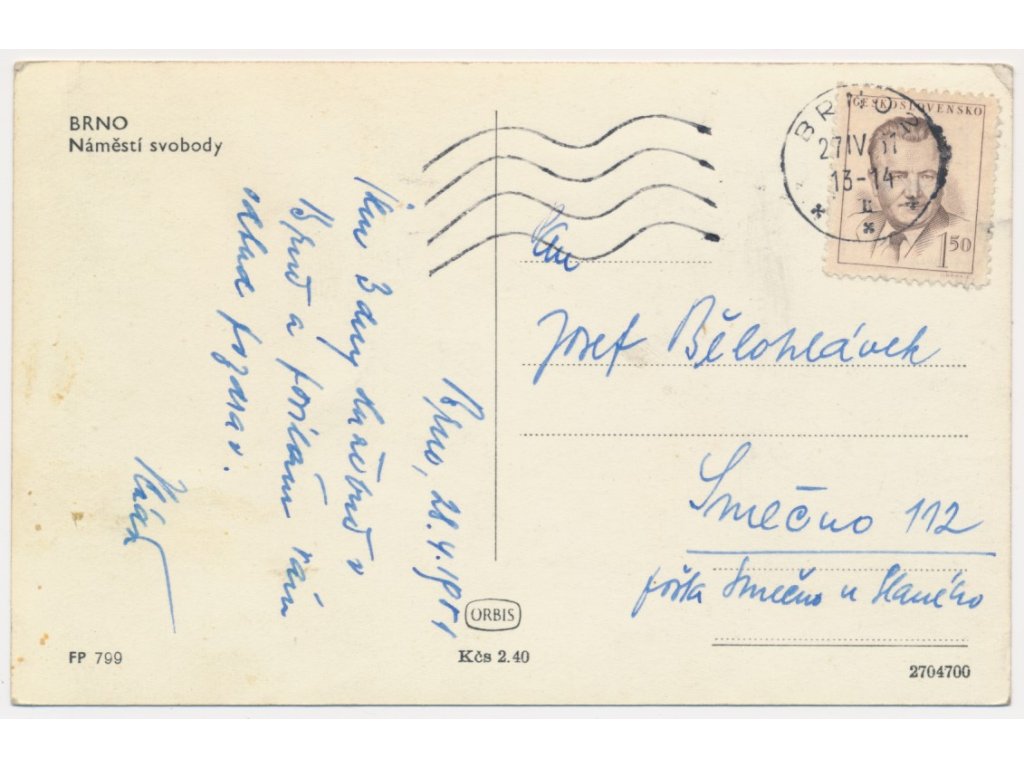 BRNO
Náměstí svobody
Brno, 28.4.1951
Jsem 3 dny služebně v
Brně a posílám vám
odtud pozdrav.
BRNO
27.IV.51
13-14
ČESKOSLOVENSKO
1.50
Pan
Josef Bělohlávek
Smečno 112
pošta Smečno u Slaného
ORBIS
FP 799
Kčs 2.40
2704700